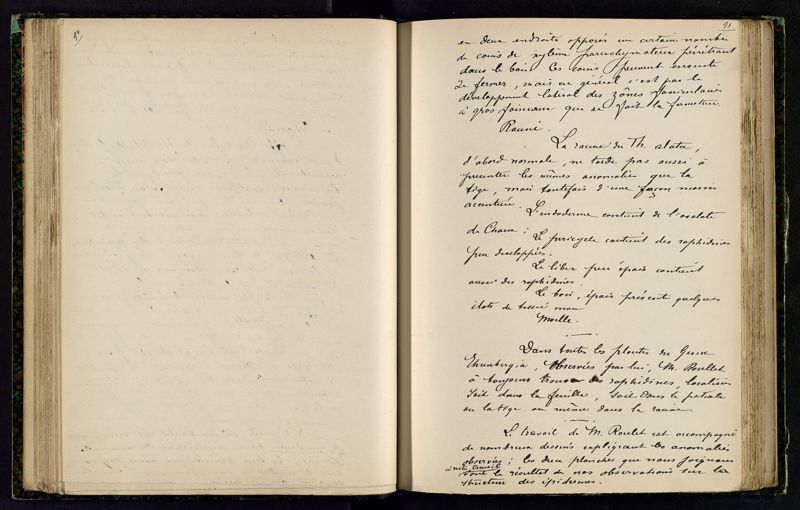 91
en deux endroits opposés un certain nombre
de coins de xylème parenchymateux pénétrant
dans le bois. Ces coins peuvent ensuite
se fermer, mais en général c'est par le
développement latéral des zônes fasciculaires
à gros faisceaux que se fait la fermeture.
Racine.
La racine du Th. alata,
d'abord normale, ne tarde pas aussi à
présenter les mêmes anomalies que la
tige, mais toutefois d'une façon moins
accentuée. L'endoderme contient de l'oxalate
de Chaux ; Le péricycle contient des raphidines
peu développées.
Le liber peu épais contient
aussi des raphidines.
Le bois, épais présente quelques
ilots de tissu mou
Moelle.
Dans toutes les plantes du Genre
Thunbergia, observées par lui, M. Roullet
a toujours trouvé des raphidines, localisées
soit dans la feuille, soit dans le pétiole
ou la tige ou même dans la racine.
Le travail de M. Roulet est accompagné
de nombreux dessins expliquant les anomalies
observées ; les deux planches que nous joignons
à notre travail
sont le résultat de nos observations sur la
structure des épidermes.